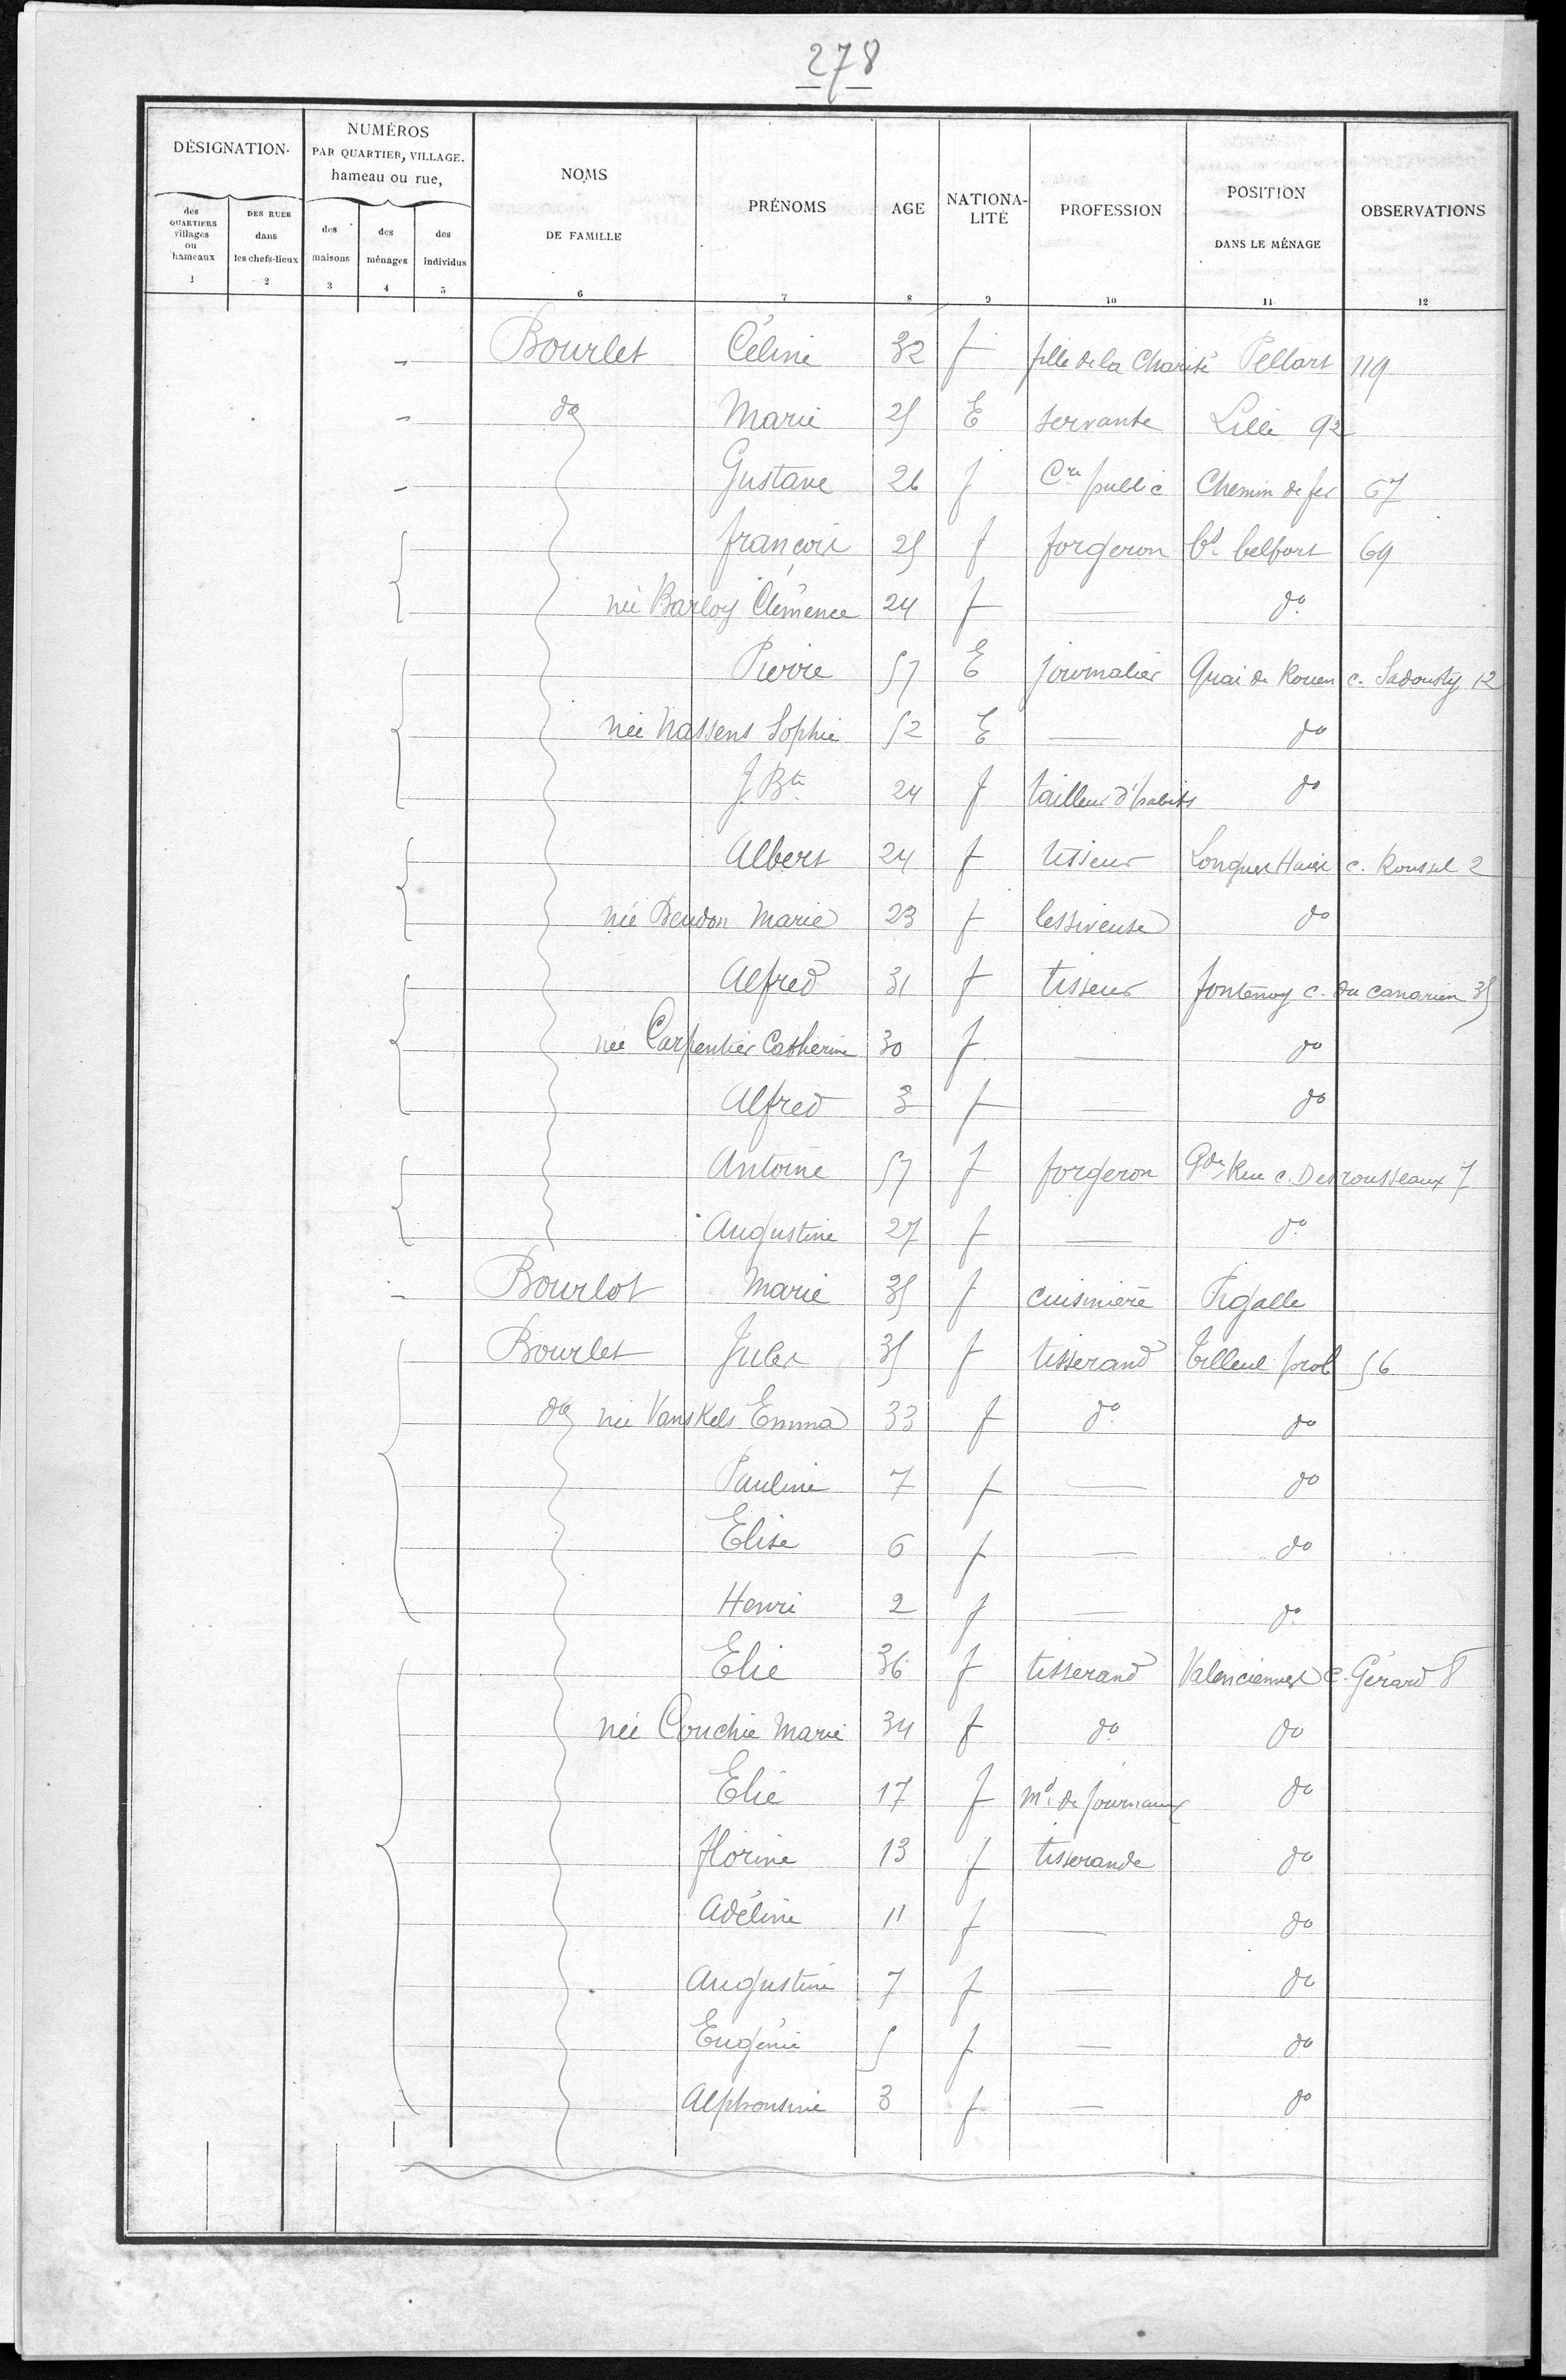 278
DÉSIGNATION.
NUMÉROS PAR QUARTIER, VILLAGE, hameau ou rue,
NOMS DE FAMILLE
PRÉNOMS
AGE
NATIONA-LITÉ
PROFESSION
POSITION DANS LE MÉNAGE
OBSERVATIONS
des QUARTIERS villages ou hameaux
DES RUES dans les chefs-lieux
des maisons
des ménages
des individus
1 2 3 4 5 6 7 8 9 10 11 12
Bourlet Céline 32 f fille de la Charité Pellart 119
do Marie 25 E servante Lille 92
Gustave 26 f Cre public Chemin de fer 67
françois 25 f forgeron bd belfort 69
née Barloy Clémence 24 f — do
Pierre 57 E journalier Quai de Rouen c. Sadousty 12
née Nassens Sophie 52 E — do
J. Bte 24 f tailleur d'habits do
Albert 24 f tisseur Longues Haies c. Roussel 2
née Deudon Marie 23 f lessiveuse do
Alfred 31 f tisseur fontenoy c. du canarien 35
née Carpentier Catherine 30 f — do
Alfred 3 f — do
Antoine 57 f forgeron Gde Rue c. Desrousseaux 7
Augustine 27 f — do
Bourlot Marie 35 f cuisinière Pigalle
Bourlet Jules 35 f tisserand tilleul prol 56
do née Vanskels Emma 33 f do do
Pauline 7 f — do
Elise 6 f — do
Henri 2 f — do
Elie 36 f tisserand Valenciennes c. Gérard 8
née Couchie Marie 34 f do do
Elie 17 f md de journaux do
florine 13 f tisserande do
Adéline 11 f — do
Augustine 7 f — do
Eugénie 5 f — do
Alphonsine 3 f — do